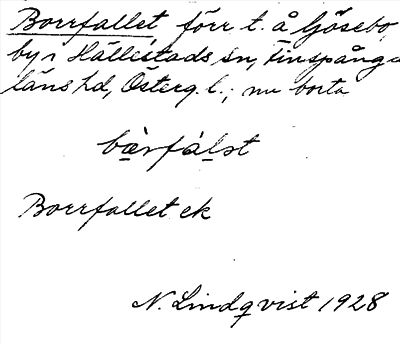 Borrfallet, förr t. å Gösebo
by i Hällestads sn, Finspånga
läns hd, Österg. l.; nu borta
bèrfálst
Borrfallet ek
N. Lindqvist 1928